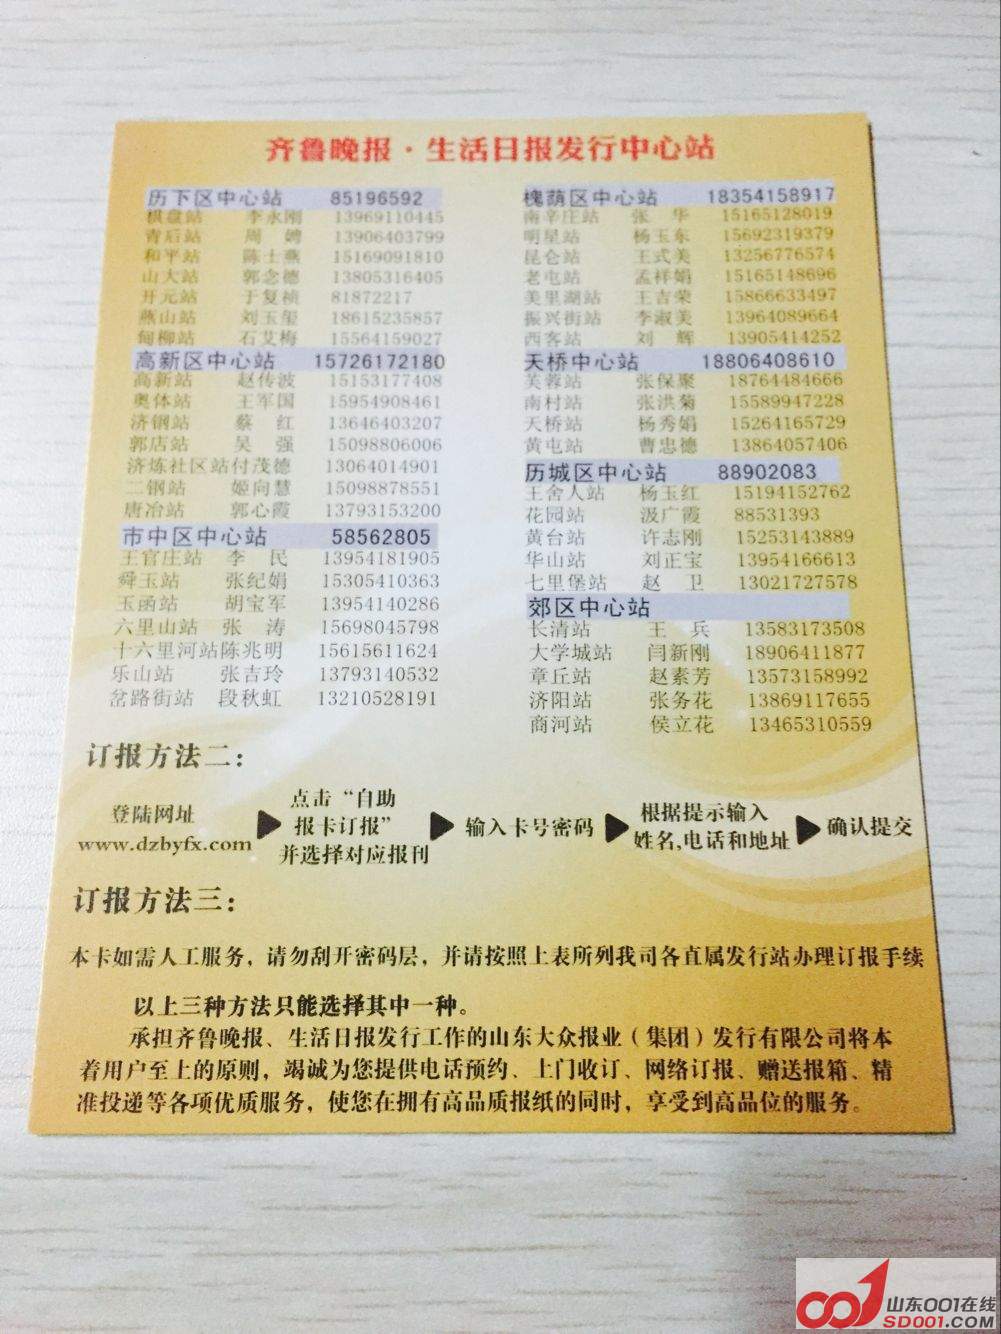 齐鲁晚报·生活日报发行中心站
历下区中心站 85196592
棋盘站 李永刚 13969110445
青后站 周娉 13906403799
和平站 陈士燕 15169091810
山大站 郭念德 13805316405
开元站 于复祯 81872217
燕山站 刘玉玺 18615235857
甸柳站 石艾梅 15564159027
高新区中心站 15726172180
高新站 赵传波 15153177408
奥体站 王军国 15954908461
济钢站 蔡红 13646403207
郭店站 吴强 15098806006
济炼社区站付茂德 13064014901
二钢站 姬向慧 15098878551
唐冶站 郭心霞 13793153200
市中区中心站 58562805
王官庄站 李民 13954181905
舜玉站 张纪娟 15305410363
玉函站 胡宝军 13954140286
六里山站 张涛 15698045798
十六里河站陈兆明 15615611624
乐山站 张吉玲 13793140532
岔路街站 段秋虹 13210528191
槐荫区中心站 18354158917
南辛庄站 张华 15165128019
明星站 杨玉东 15692319379
昆仑站 王式美 13256776574
老屯站 孟祥娟 15165148696
美里湖站 王吉荣 15866633497
振兴街站 李淑美 13964089664
西客站 刘辉 13905414252
天桥中心站 18806408610
芙蓉站 张保聚 18764484666
南村站 张洪菊 15589947228
天桥站 杨秀娟 15264165729
黄屯站 曹忠德 13864057406
历城区中心站 88902083
王舍人站 杨玉红 15194152762
花园站 汲广霞 88531393
黄台站 许志刚 15253143889
华山站 刘正宝 13954166613
七里堡站 赵卫 13021727578
郊区中心站
长清站 王兵 13583173508
大学城站 闫新刚 18906411877
章丘站 赵素芳 13573158992
济阳站 张务花 13869117655
商河站 侯立花 13465310559
订报方法二：
登陆网址
www.dzbyfx.com
点击“自助
报卡订报”
并选择对应报刊
输入卡号密码
根据提示输入
姓名,电话和地址
确认提交
订报方法三：
本卡如需人工服务，请勿刮开密码层，并请按照上表所列我司各直属发行站办理订报手续
以上三种方法只能选择其中一种。
承担齐鲁晚报、生活日报发行工作的山东大众报业（集团）发行有限公司将本
着用户至上的原则，竭诚为您提供电话预约、上门收订、网络订报、赠送报箱、精
准投递等各项优质服务，使您在拥有高品质报纸的同时，享受到高品位的服务。
001 山东001在线
SD001.COM